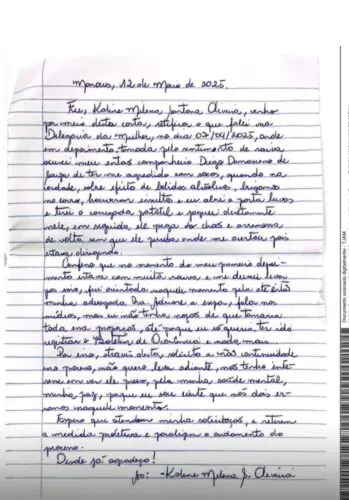 Manaus, 12 de Maio de 2025.
Eu, Kaline Milena Santana Oliveira, venho
por meio desta carta, retificar o que falei na
Delegacia da mulher, no dia 07/04/2025, onde
em depoimento, tomada pelo sentimento de raiva,
acusei meu então companheiro Diego Damasceno de
de ter me agredido com socos, quando na
verdade, sobre efeito de bebidas alcólicas, brigamos
no carro, houveram insultos e eu abri o porta luvas
e tirei o carregador portátil e joguei diretamente
nele, em seguida, ele pega do chão e arremessa
de volta sem que ele perceba onde me acertou pois
estava dirigindo.
Confesso que no momento do meu primeiro depoi-
mento estava com muita raiva, e me deixei levar
por isso, fui orientada naquele momento pela até então
minha advogada Dra. a expor, falar nas
mídias, mas eu não tinha noção de que tomaria
toda essa proporção, até porque eu só queria ter ido
registrar o Boletim de Ocorrência e nada mais.
Por isso, através desta, solicito a não continuidade
no processo, não quero levar adiante, não tenho inte-
resse em ver ele preso, pela minha saúde mental,
minha paz, porque eu sou ciente que nós dois er-
ramos naquele momento.
Espero que atendam minha solicitação, e retirem
a medida protetiva e paralisem o andamento do
processo.
Desde já agradeço!
Ass: - Kaline Milena S. Oliveira
Documento assinado digitalmente - TJAM